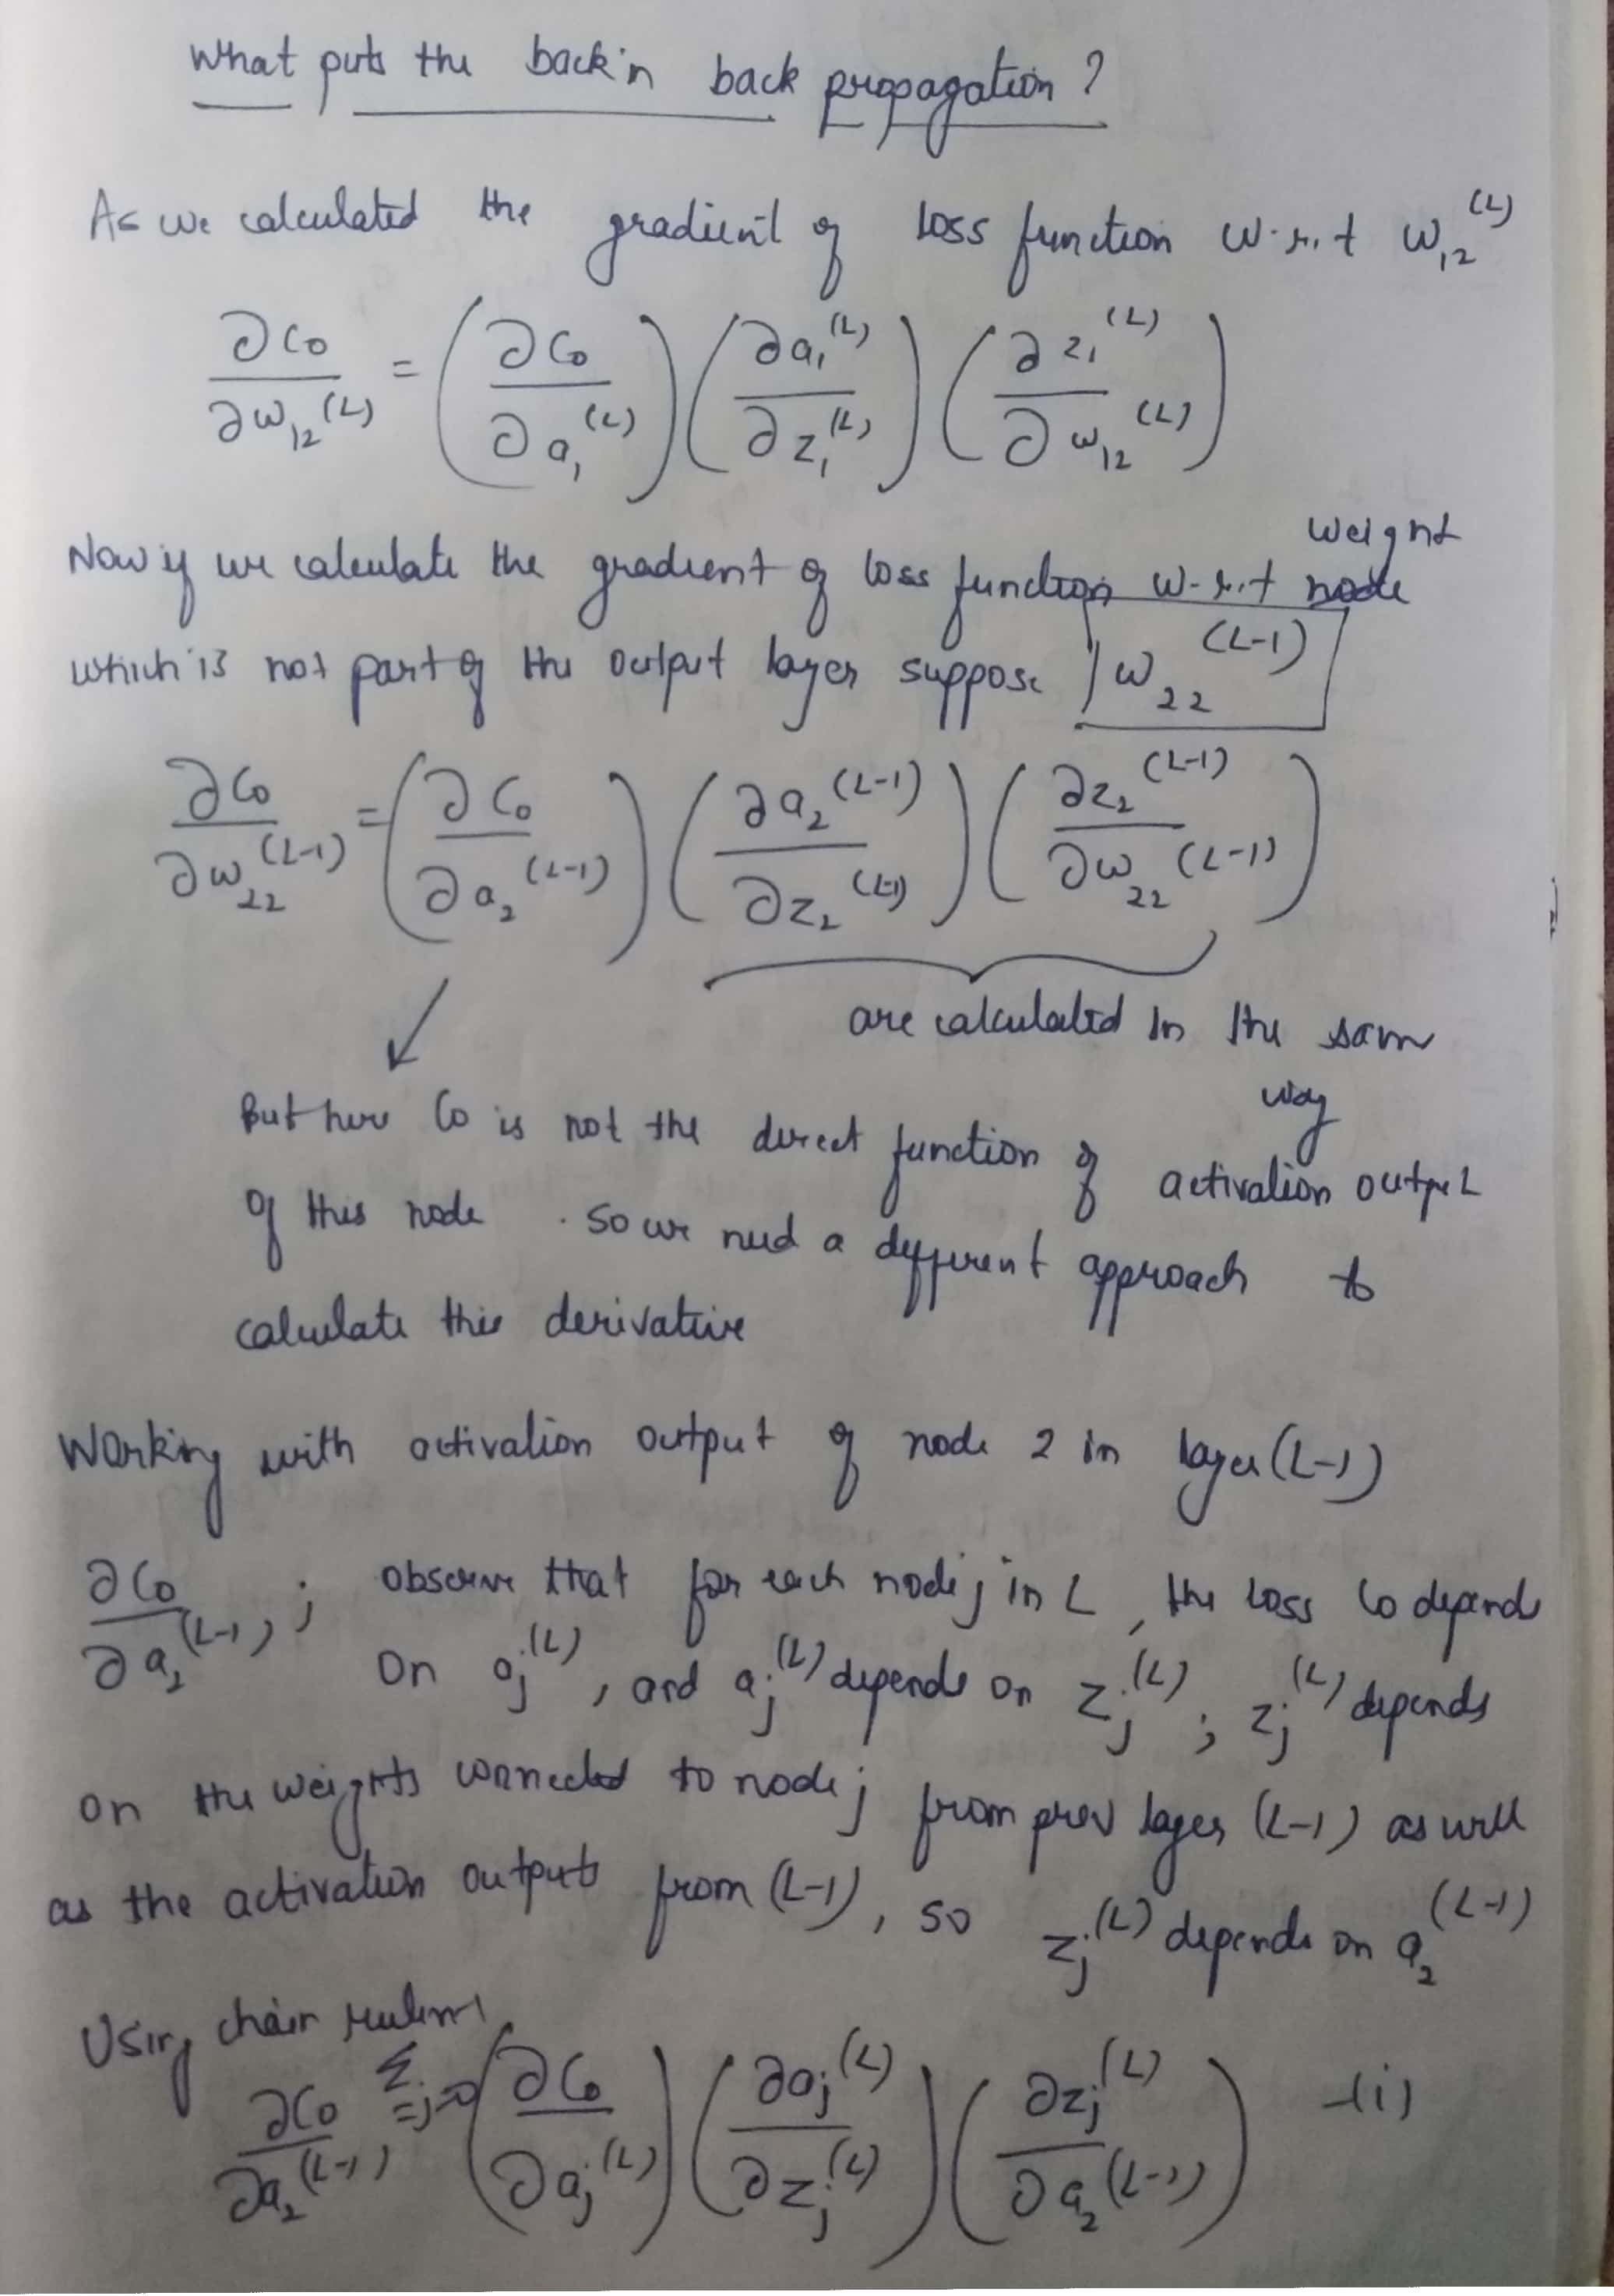 What puts the back in back propagation ?
As we calculated the gradient of loss function w.r.t w₁₂^(L)
∂C₀/∂w₁₂^(L) = (∂C₀/∂a₁^(L)) (∂a₁^(L)/∂z₁^(L)) (∂z₁^(L)/∂w₁₂^(L))
weight
Now if we calculate the gradient of loss function w.r.t node
which is not part of the output layer suppose w₂₂^(L-1)
∂C₀/∂w₂₂^(L-1) = (∂C₀/∂a₂^(L-1)) (∂a₂^(L-1)/∂z₂^(L-1)) (∂z₂^(L-1)/∂w₂₂^(L-1))
are calculated in the same
way
But here C₀ is not the direct function of activation output
of this node . So we need a different approach to
calculate this derivative
Working with activation output of node 2 in layer (L-1)
∂C₀/∂a₂^(L-1) ; observe that for each node j in L, the loss C₀ depends
on aⱼ^(L), and aⱼ^(L) depends on zⱼ^(L) ; zⱼ^(L) depends
on the weights connected to node j from prev layer (L-1) as well
as the activation outputs from (L-1), so zⱼ^(L) depends on a₂^(L-1)
Using chain rule
∂C₀/∂a₂^(L-1) = Σ j=0 n-1 (∂C₀/∂aⱼ^(L)) (∂aⱼ^(L)/∂zⱼ^(L)) (∂zⱼ^(L)/∂a₂^(L-1)) -(i)